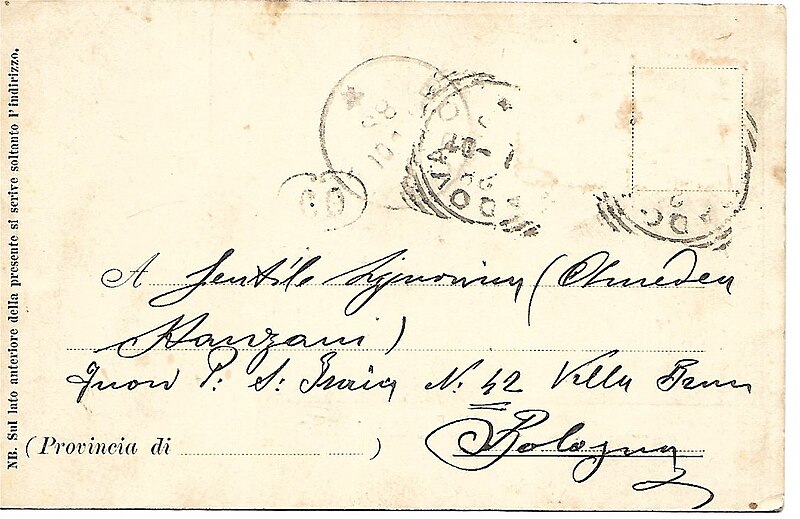 NB. Sul lato anteriore della presente si scrive soltanto l'indirizzo.
PADOVA
60
A Gentile Signorina (Olmeden
Manzani)
Fuori P: S: N: 42 Villa
Bologna
(Provincia di )